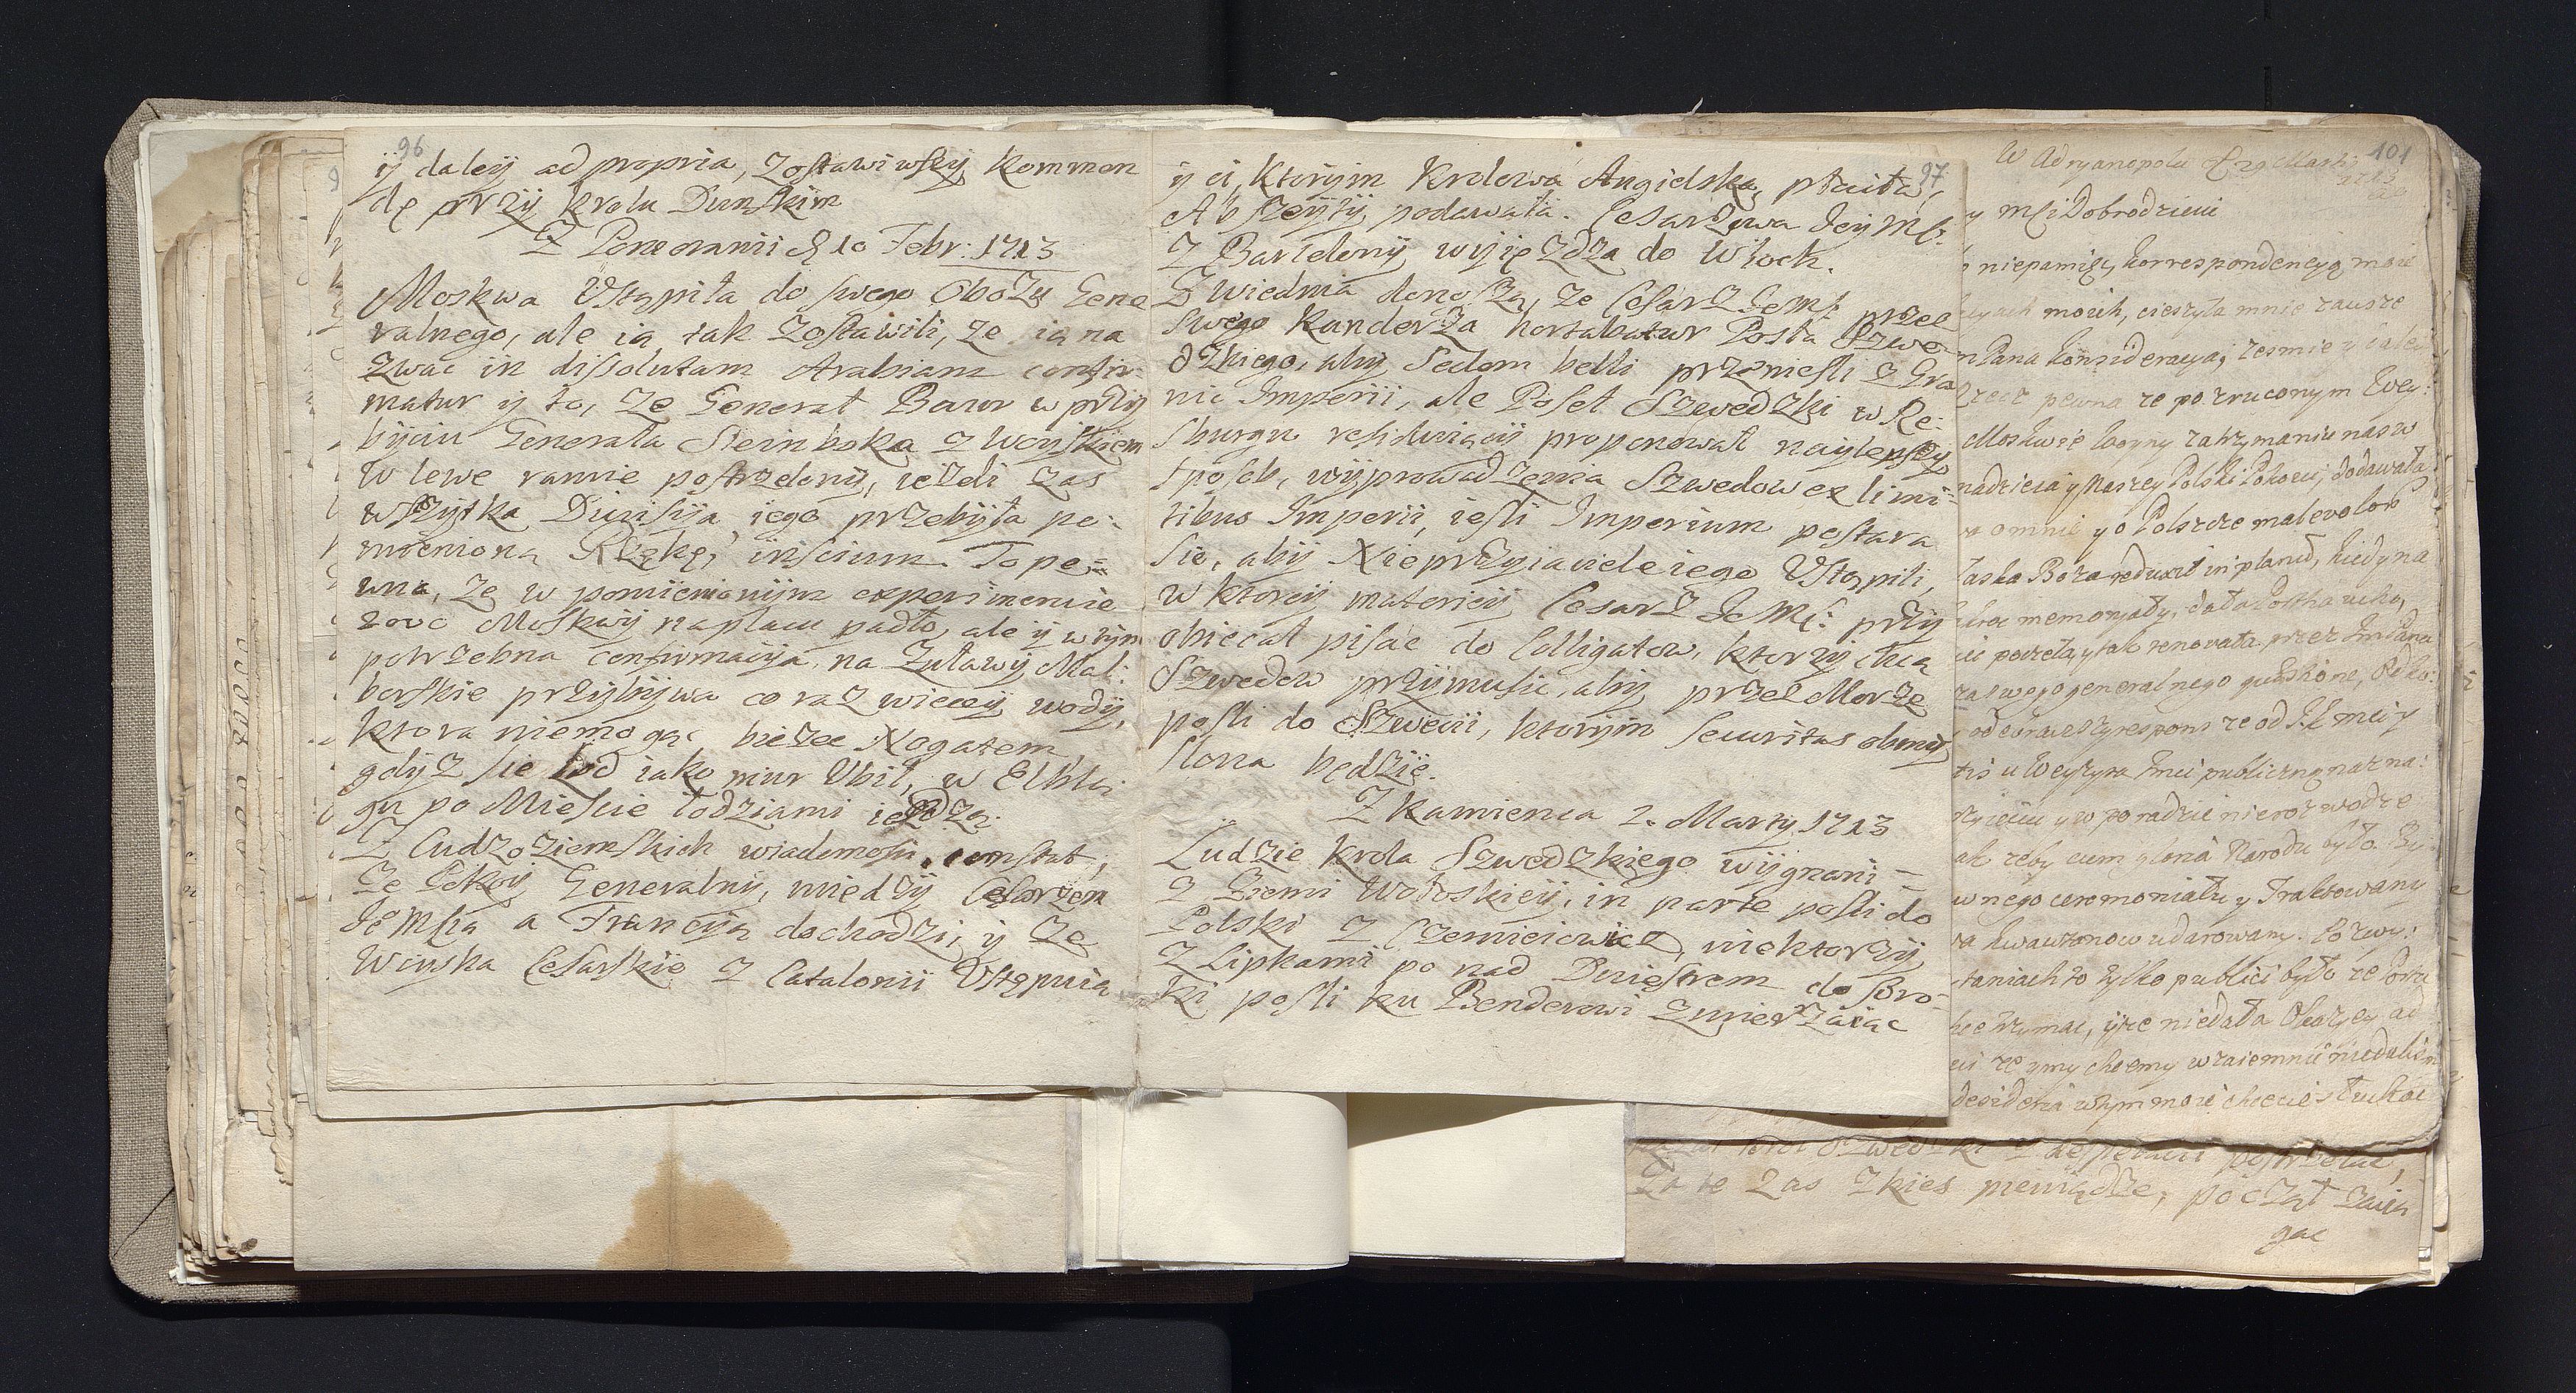 96
ÿ daleÿ ad propria, zostawiwszÿ Kommen
dę przÿ Krolu Dunskim
Z Pomeranii d 10 Febr: 1713
Moskwa Ustąpiła do swego Obozu Gene
ralnego, ale ią tak zostawili, ze ią na
zwac in dissolutam Arabiam confir-
matur ÿ to, ze Generał Baur w przÿ
bÿciu Generała Steinboka z Woÿskiem
w lewe ramie postrzelonÿ, iezeli zas
wszÿstka Diwisÿia iego przebÿła po-
mienioną Rzekę, inscium. To pe=
wna, ze w pomienionÿm experimencie
2000 Moskwÿ na placu padło, ale ÿ w tÿm
potrzebna confirmacÿia, na Zuławÿ Mal:
borskie przÿbÿwa co raz wieceÿ wodÿ,
ktora niemogąc biezec Nogatem,
gdÿz sie lod iako mur Ubił, w Elblą
gu po Miescie łodziami iezdzą.
Z Cudzoziemskich wiadomosci constat,
ze Pokoy Generalnÿ, miedzÿ Cesarzem
Je Mscią a Francÿią dochodzi, ÿ ze
Woÿska Cesarskie z Catalonii Ustępuią
97
ÿ ci, ktorÿm Krolowa Angielska płaciła,
Abszeÿtÿ podawała. Cesarzowa Jeÿ Mć:
z Barcelonÿ wÿieżdza do Włoch.
Z Wiednia donoszą, ze Cesarz Jemć przez
swego Kanclerza hortabatur Posła Szwe-
dzkiego, abÿ Sedem belli przeniesli z Gra
nic Imperii, ale Poseł Szwedzki w Re-
sburgu residuiącÿ proponował naÿlepszÿ
sposob, wÿprowadzenia Szwedow ex limi-
tibus Imperii, iesli Imperium postara
sie, abÿ Nieprzÿiaciele iego Ustąpili,
w ktoreÿ materÿeÿ Cesarz Je Mć: przÿ
obiecał pisac do Colligatow, ktorzÿ chcą
Szwedow przÿmusic, abÿ przez Morze
poszli do Szwecii, ktorÿm securitas obmÿ
slona będzie.
Z Kamienca 2. Marty 1713
Ludzie Krola Szwedzkiego wÿgnani
z Ziemi Wołoskieÿ, in parte poszli do
Polski z Czerniciowic, niektorzÿ
z Lipkami po nad Dniestrem do Soro-
ki poszli ku Benderowi zmierzaiac
101
W Adryanopolu 29 Martii
1713
y Msci Dobrodzieiu
niepamięc, korrespondencyą moie
moich, cieszyła mnie zawsze
Pana konsideracya, zesmie y
rzecz pewna ze po zruconym Wey:
Moskwie Woyny zatrzymaniu nas w
nadzieia y Naszey Polski Pokoiu, dodawała
o mnie y o Polszcze malevolor
łaska Boza reduxit in planū, kiedy na
memoryały, dała Portha ucho,
poczęła, y tak renovata przez Jm Pana
swego generalnego
respons ze od J.K Mci y
u Weyzyra Jmci publiczną nazna:
y w poradzie nierozwodze
ak zeby cum gloriâ Narodu było. By:
wnego ceremoniału y Traktowany
kawałkow udarowany. Co zwy:
taniach to tylko publici było ze
trzymac, yze niedała Okazyey ad
ze y my chcemy wzaiemnie niedalis
desideria w tym moie chcecie słuchac
Szwedzki z desperacii postrzelac,
Za te zas zkies pieniądze, począł zacią
gac